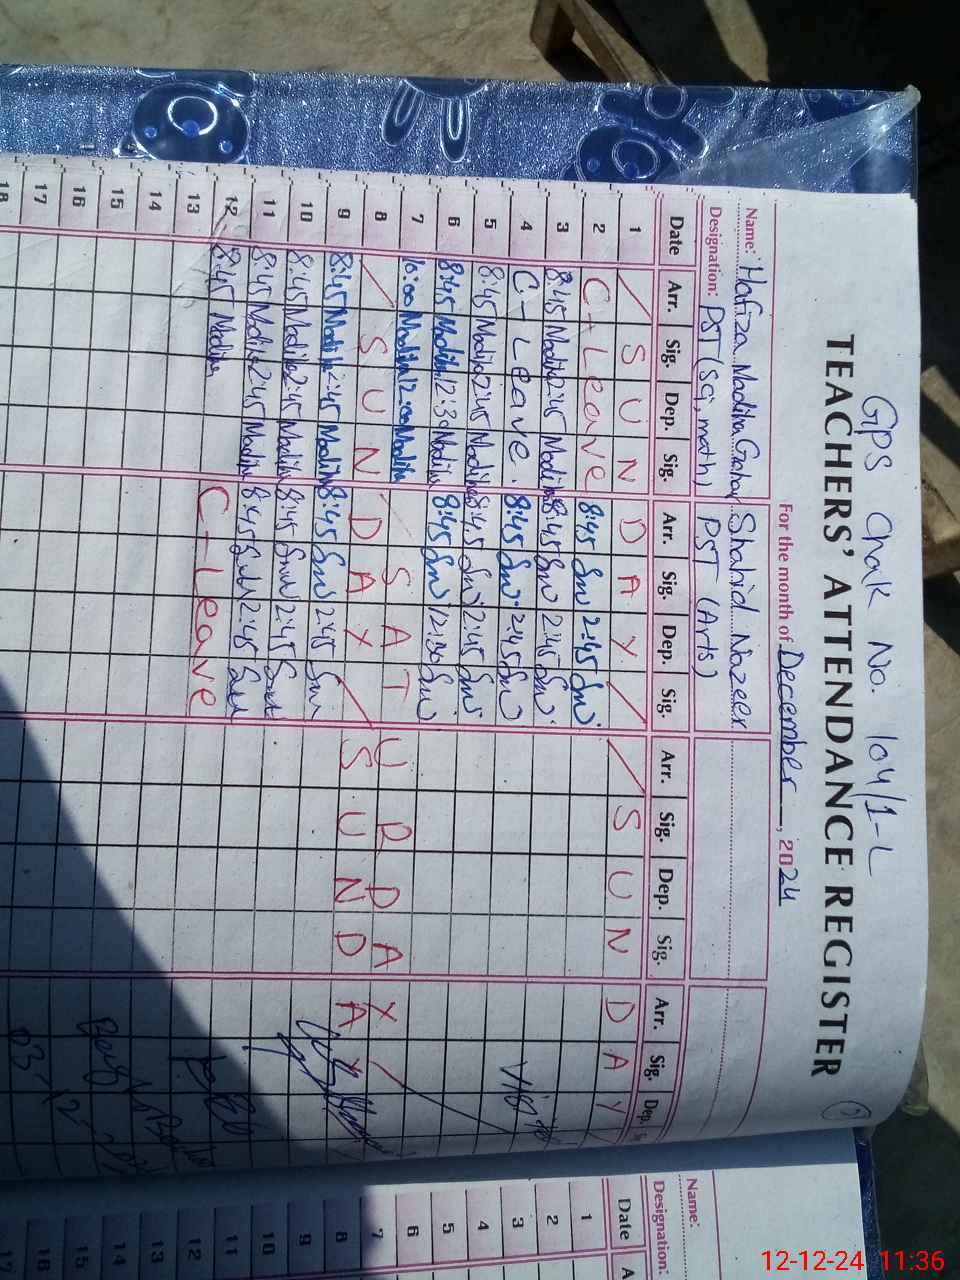 GPS Chak No. 104/1-L
TEACHERS' ATTENDANCE REGISTER
For the month of December, 2024
Name: Hafiza Madiha Gohar Shahid Nazeer
Designation: PST (Sci, math) PST (Arts)
Date Arr. Sig. Dep. Sig. Arr. Sig. Dep. Sig. Arr. Sig. Dep. Sig. Arr. Sig. Dep.
1 / S U N D A Y / / S U N D A Y
2 C-Leave 8:45 2:45
3 8:45 Madiha 2:45 Madiha 8:45 2:45
4 C-Leave. 8:45 2:45
5 8:45 Madiha 2:45 Madiha 8:45 2:45
6 8:45 Madiha 12:30 Madiha 8:45 12:30
7 10:00 Madiha 12:00 Madiha S A T U R D A Y /
8 / S U N D A Y / S U N D A Y
9 8:45 Madiha 2:45 Madiha 8:45 2:45
10 8:45 Madiha 2:45 Madiha 8:45 2:45
11 8:45 Madiha 2:45 Madiha 8:45 2:45
12 8:45 Madiha C-Leave
13
14
15
16
17
18
Name:
Designation:
Date A
1
2
3
4
5
6
7
8
9
10
11
12
13
14
15
16
17
12-12-24 11:36